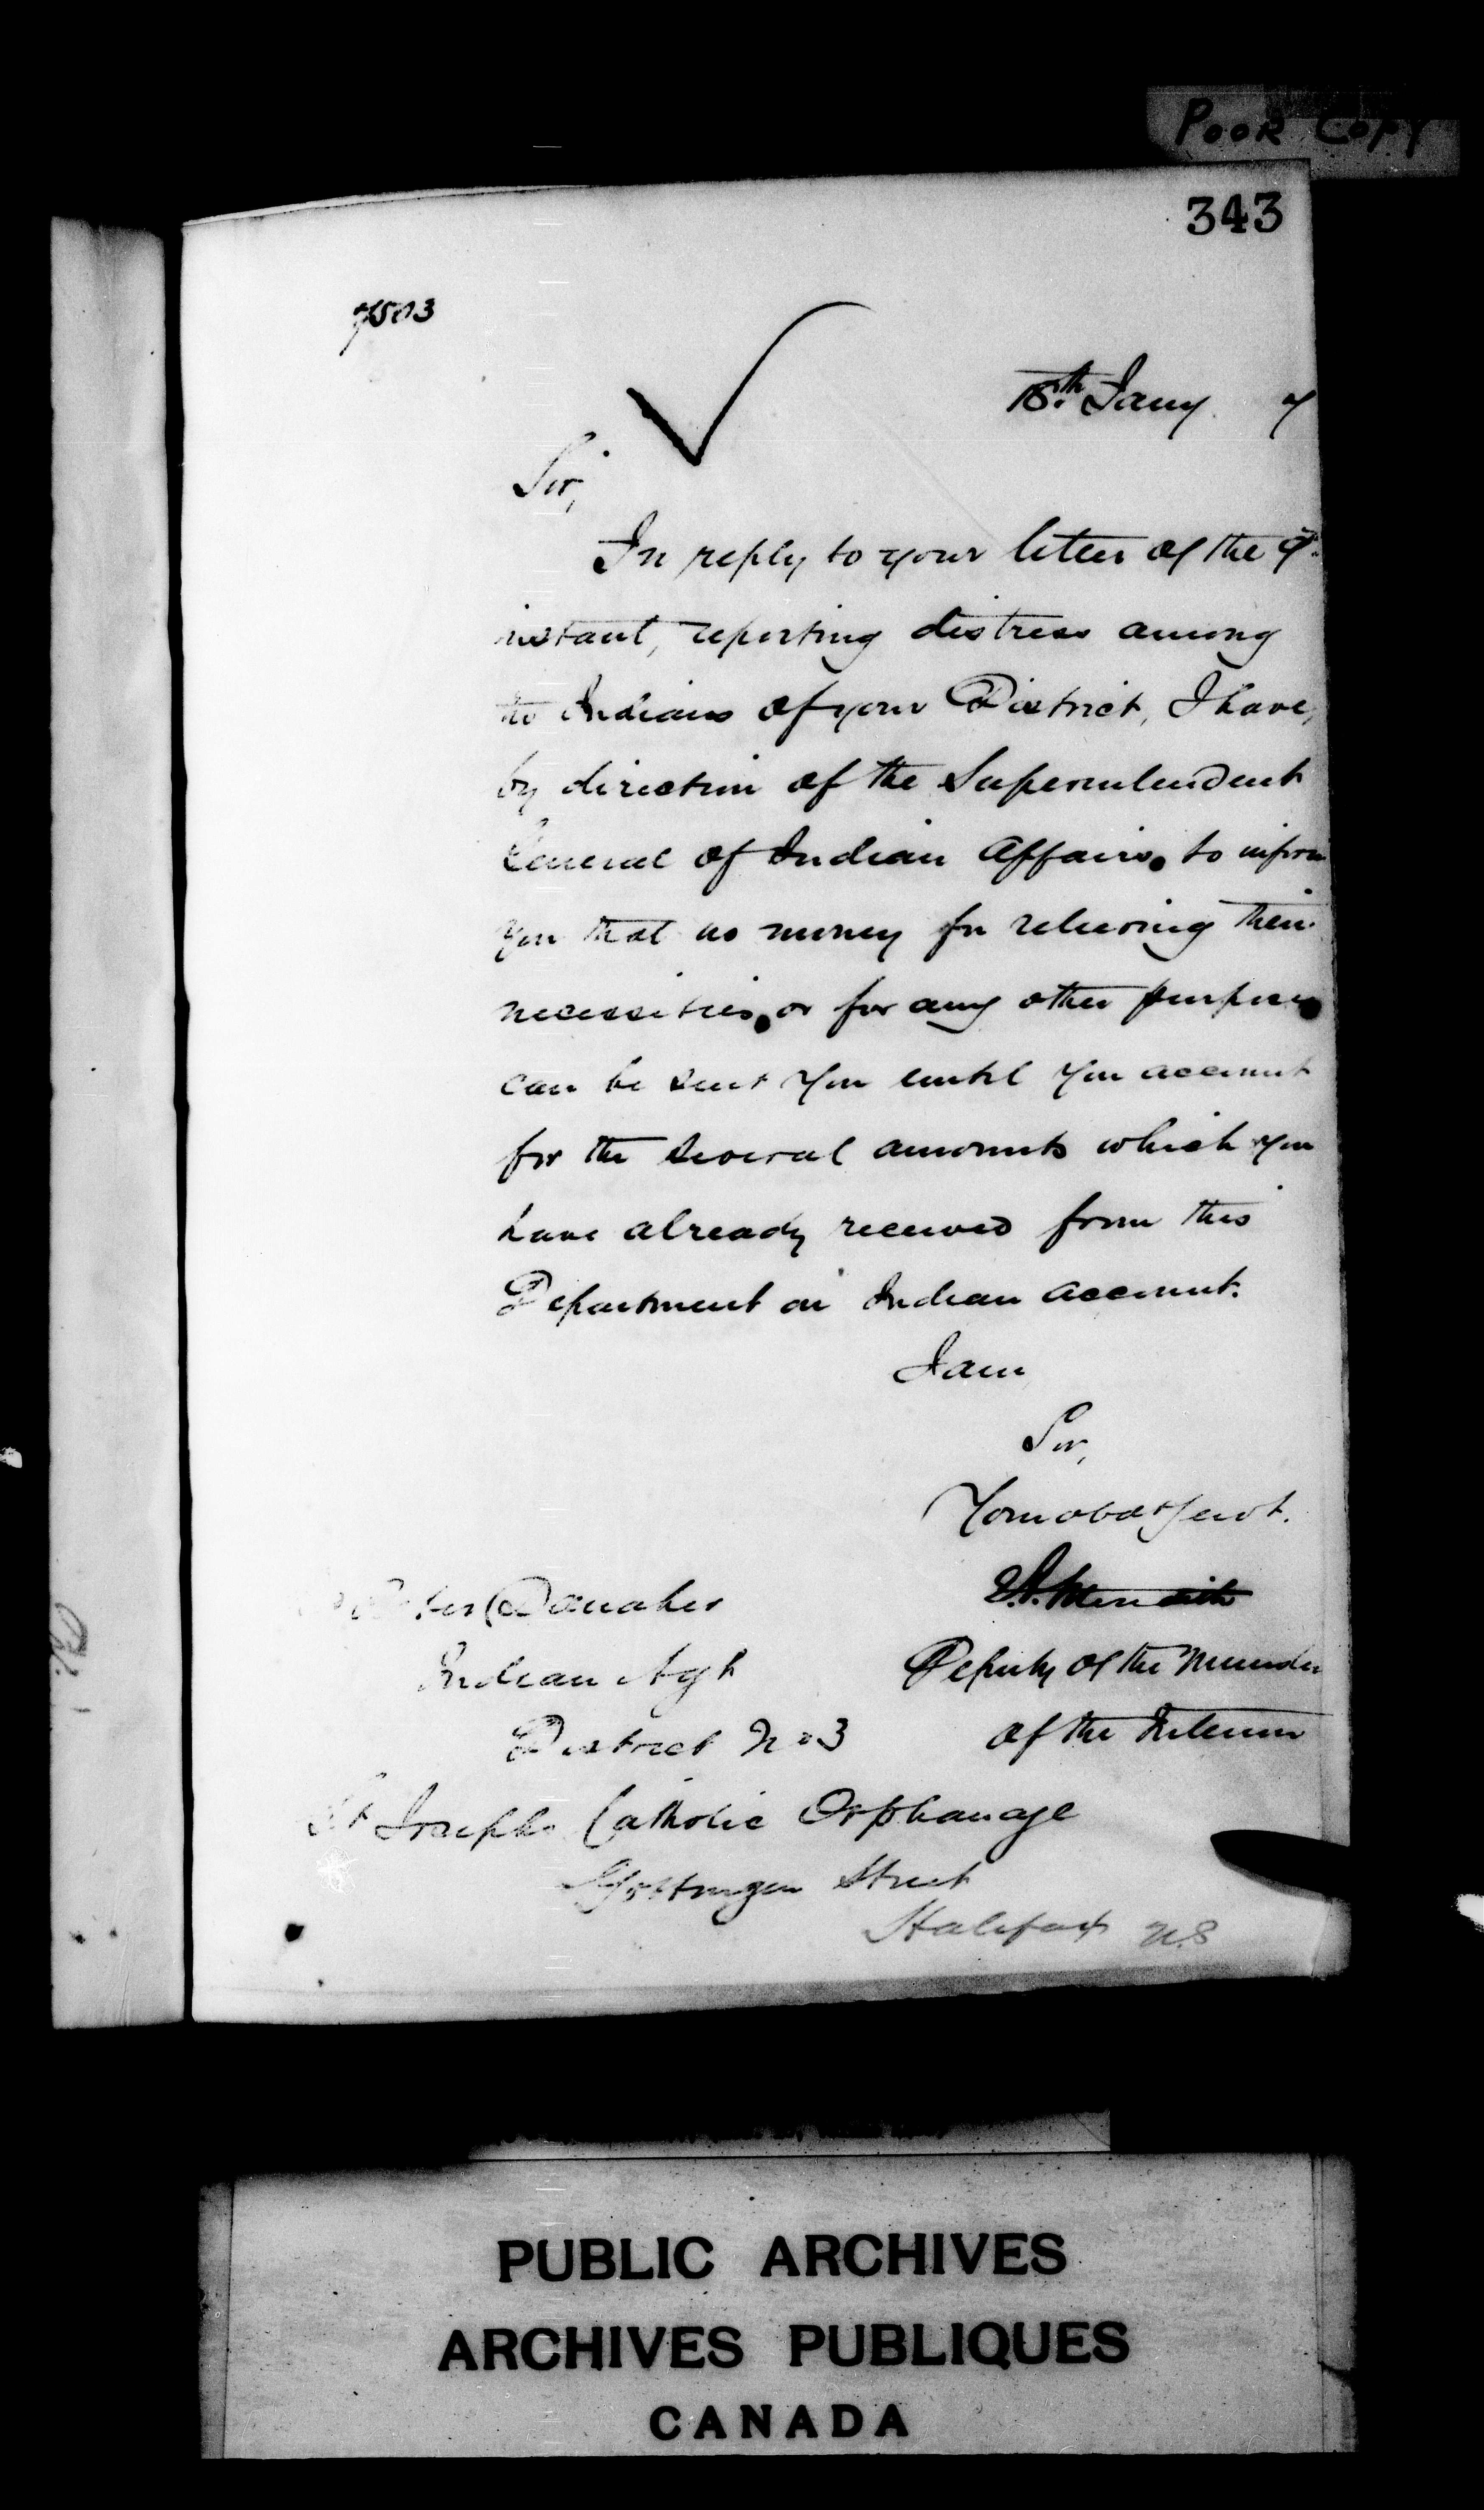 POOR COPY
343
7503
18th Jany 7
Sir,
In reply to your letter of the 9th
instant, reporting distress among
the Indians of your District, I have,
by direction of the Superintendent
General of Indian Affairs, to inform
you that no money for relieving their
necessities, or for any other purpose,
can be sent you until you account
for the several amounts which you
have already received from this
Department on Indian account.
I am
Sir,
Your obdt Servt.
Danaher
Indian Agt
E.A. Meredith
Deputy of the Minister
District No 3
of the Interior
St Josephs Catholic Orphanage
Gottingen Street
Halifax N.S
PUBLIC ARCHIVES
ARCHIVES PUBLIQUES
CANADA